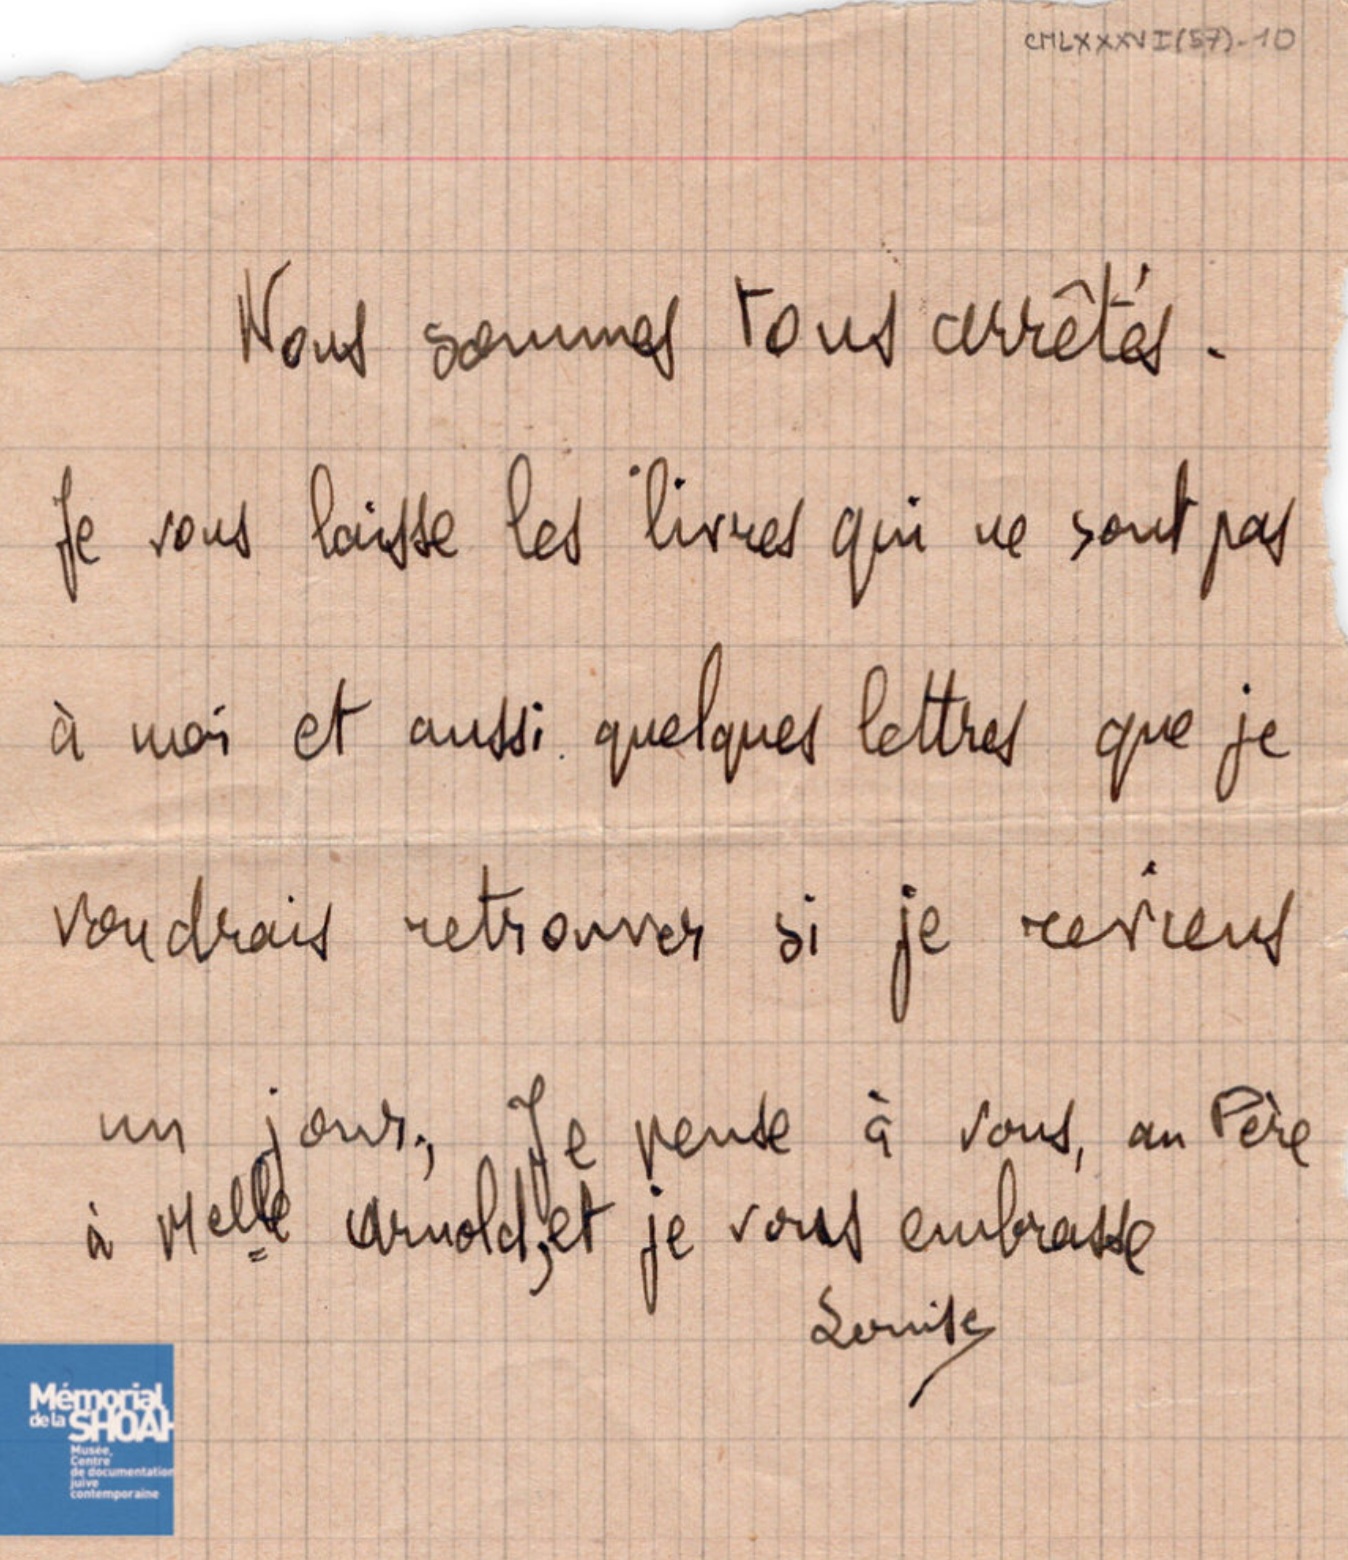 CMLXXXVI(57)-10
Nous sommes tous arrêtés.
Je vous laisse les livres qui ne sont pas
à moi et aussi quelques lettres que je
voudrais retrouver si je reviens
un jour., Je pense à vous, au Père
à Melle Arnold, et je vous embrasse
Louise
Mémorial
de la SHOAH
Musée,
Centre
de documentation
juive
contemporaine